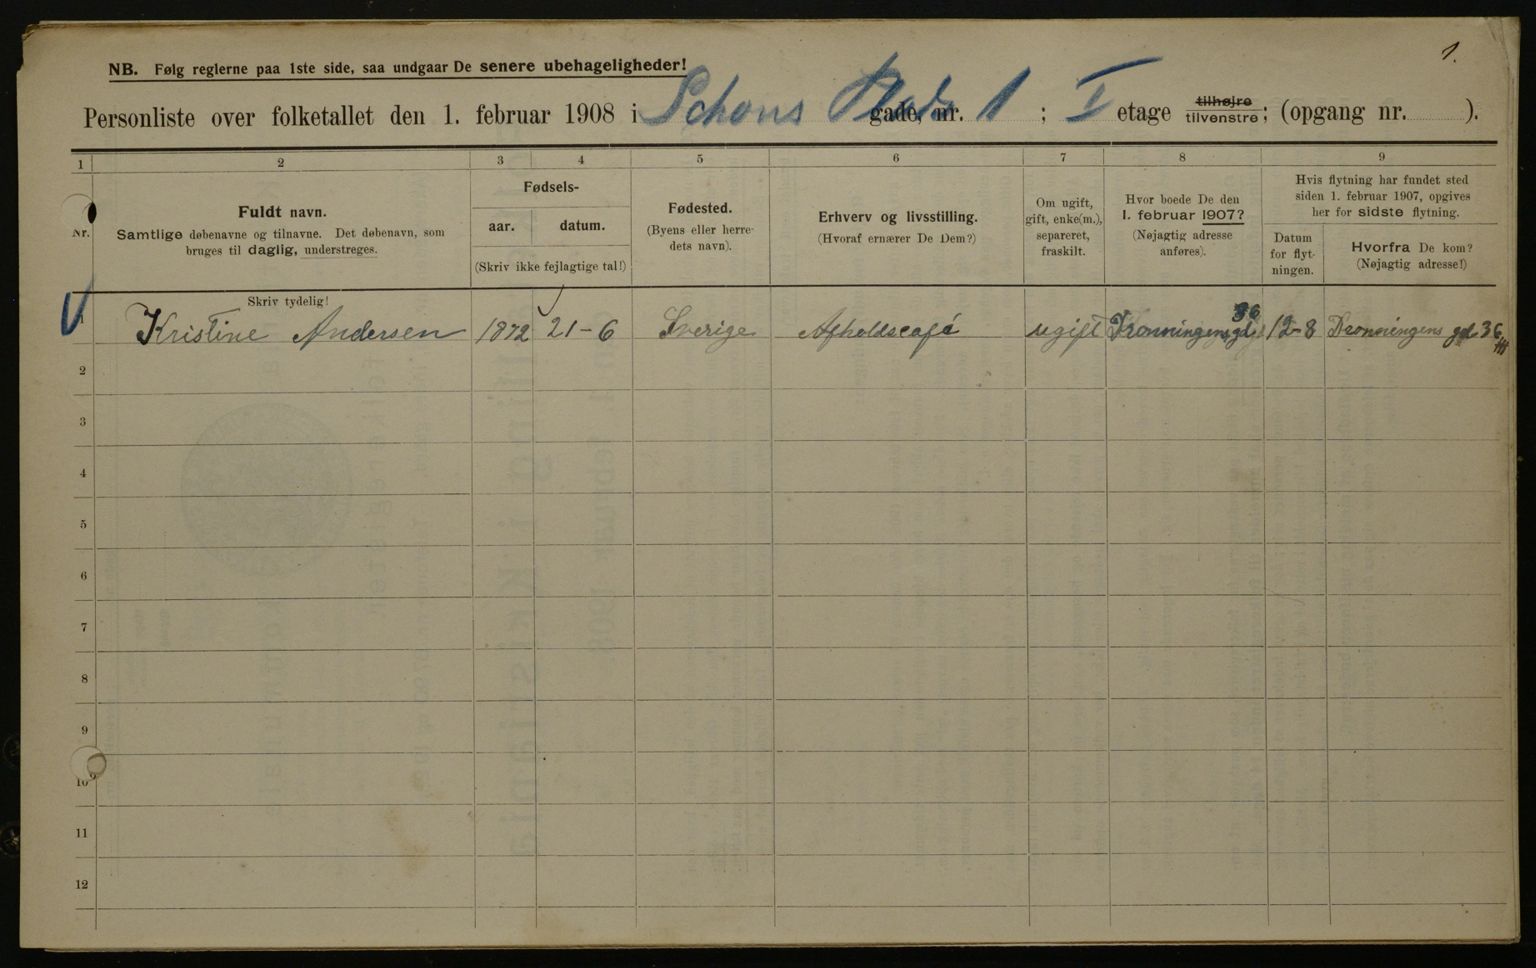 1.
NB. Følg reglerne paa 1ste side, saa undgaar De senere ubehageligheder!
Personliste over folketallet den 1. februar 1908 i Schous Plads gade, nr. 1 ; I etage tilhøjre tilvenstre ; (opgang nr. ).
1 2 3 4 5 6 7 8 9
Nr.
Fuldt navn.
Samtlige døbenavne og tilnavne. Det døbenavn, som
bruges til daglig, understreges.
Fødsels-
aar. datum.
(Skriv ikke fejlagtige tal!)
Fødested.
(Byens eller herre-
dets navn).
Erhverv og livsstilling.
(Hvoraf ernærer De Dem?)
Om ugift,
gift, enke(m.),
separeret,
fraskilt.
Hvor boede De den
1. februar 1907?
(Nøjagtig adresse
anføres).
Hvis flytning har fundet sted
siden 1. februar 1907, opgives
her for sidste flytning.
Datum
for flyt-
ningen.
Hvorfra De kom?
(Nøjagtig adresse!)
Skriv tydelig!
1 Kristine Andersen 1872 21-6 Sverige Afholdscafé ugift Dronningens gd 36 12-8 Dronningens gd 36 III
2
3
4
5
6
7
8
9
10
11
12